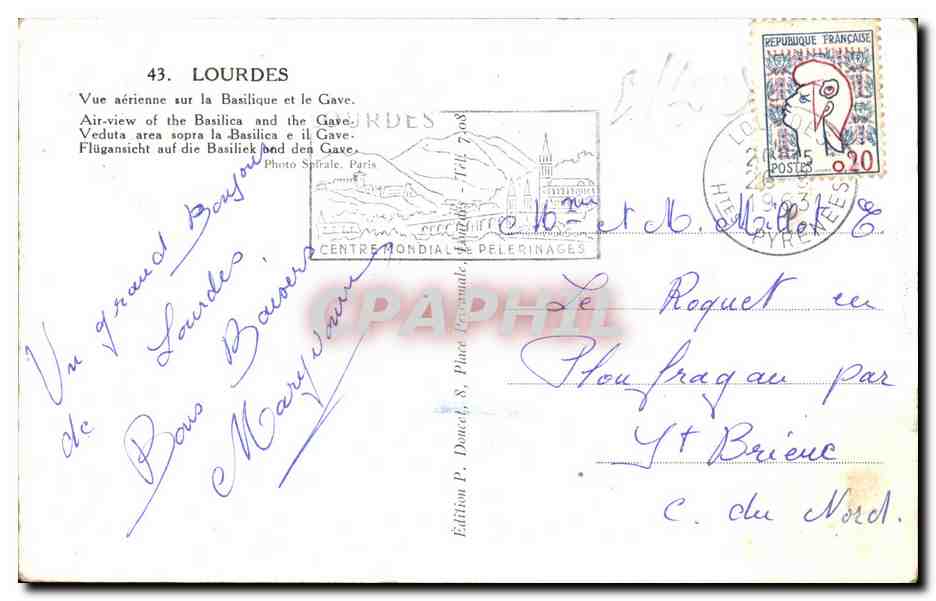 43. LOURDES
Vue aérienne sur la Basilique et le Gave.
Air-view of the Basilica and the Gave.
Veduta area sopra la Basilica e il Gave.
Flügansicht auf die Basiliek and den Gave.
Photo Spirale, Paris
Un grand Bonjour
de Lourdes.
Bons Baisers
Maryvonne
LOURDES
CENTRE MONDIAL DE PÈLERINAGES
Edition P. Doucet, 8, Place Peyramale, Lourdes - Tél. 7.08
REPUBLIQUE FRANÇAISE
POSTES 0,20
LOURDES
1963
HTES PYRENEES
Mme et M. E.
Le Roquet en
Ploufragan par
St Brieuc
C. du Nord.
CPAPHIL